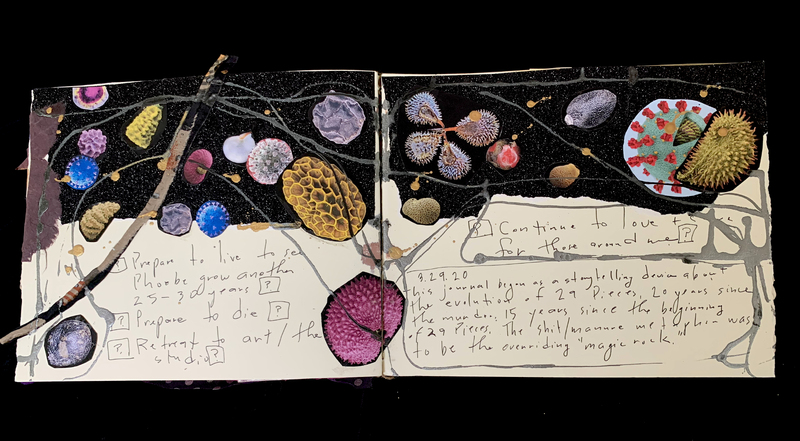 ? Prepare to live to see
Phoebe grow another
25-30 years ?
? Prepare to die ?
? Retreat to art/the
studio ?
? Continue to love &
for those around me ?
3.29.20
this journal began as a storytelling demo about
the evolution of 29 Pieces, 20 years since
the murder, 15 years since the beginning
of 29 Pieces. The "shit/manure metaphor was
to be the overriding "magic rock."